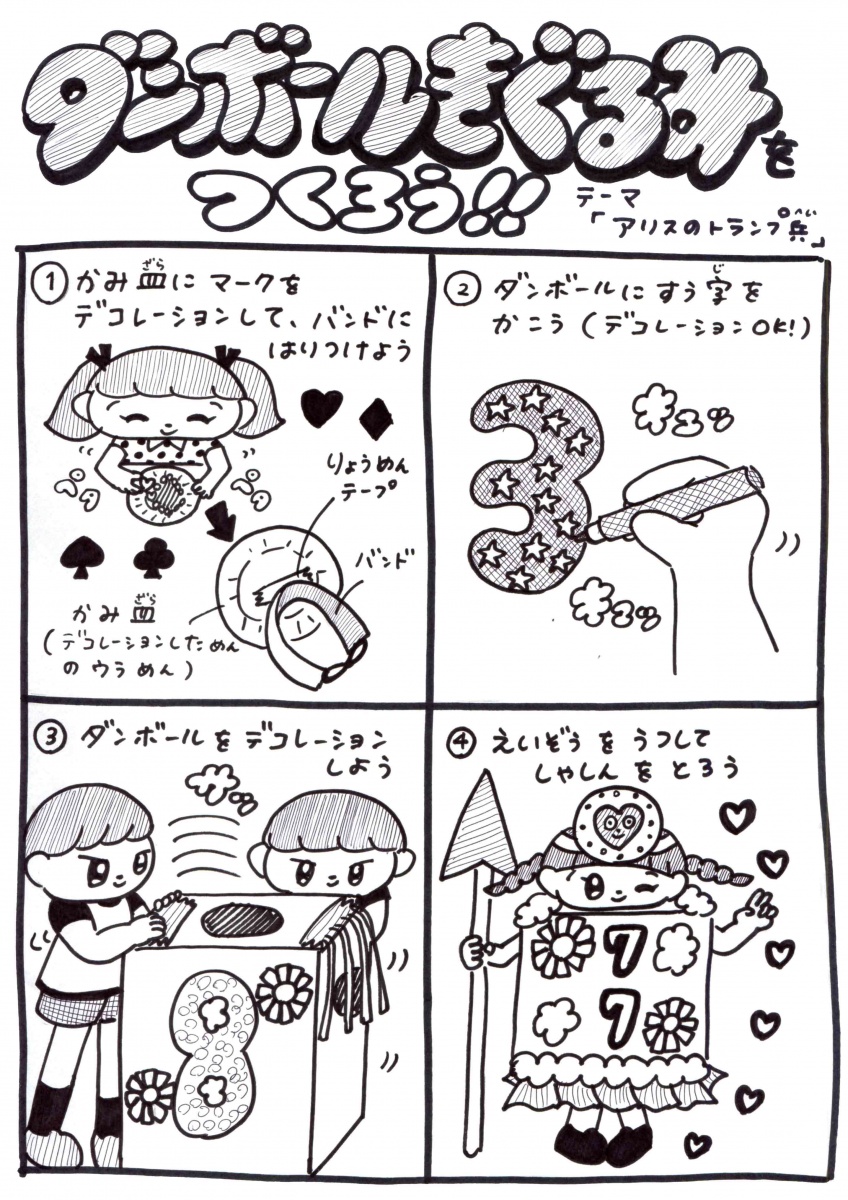 ダンボールきぐるみを
つくろう!!
テーマ
「アリスのトランプ兵」
へい
① かみ皿にマークを
ざら
デコレーションして、バンドに
はりつけよう
りょうめん
テープ
バンド
かみ皿
ざら
(デコレーションしためん
のウラめん)
② ダンボールにすう字を
じ
かこう(デコレーションOK!)
3
ギュッ
ギュッ
③ ダンボールをデコレーション
しよう
サッ
8
④ えいぞうをうつして
しゃしんをとろう
7
7